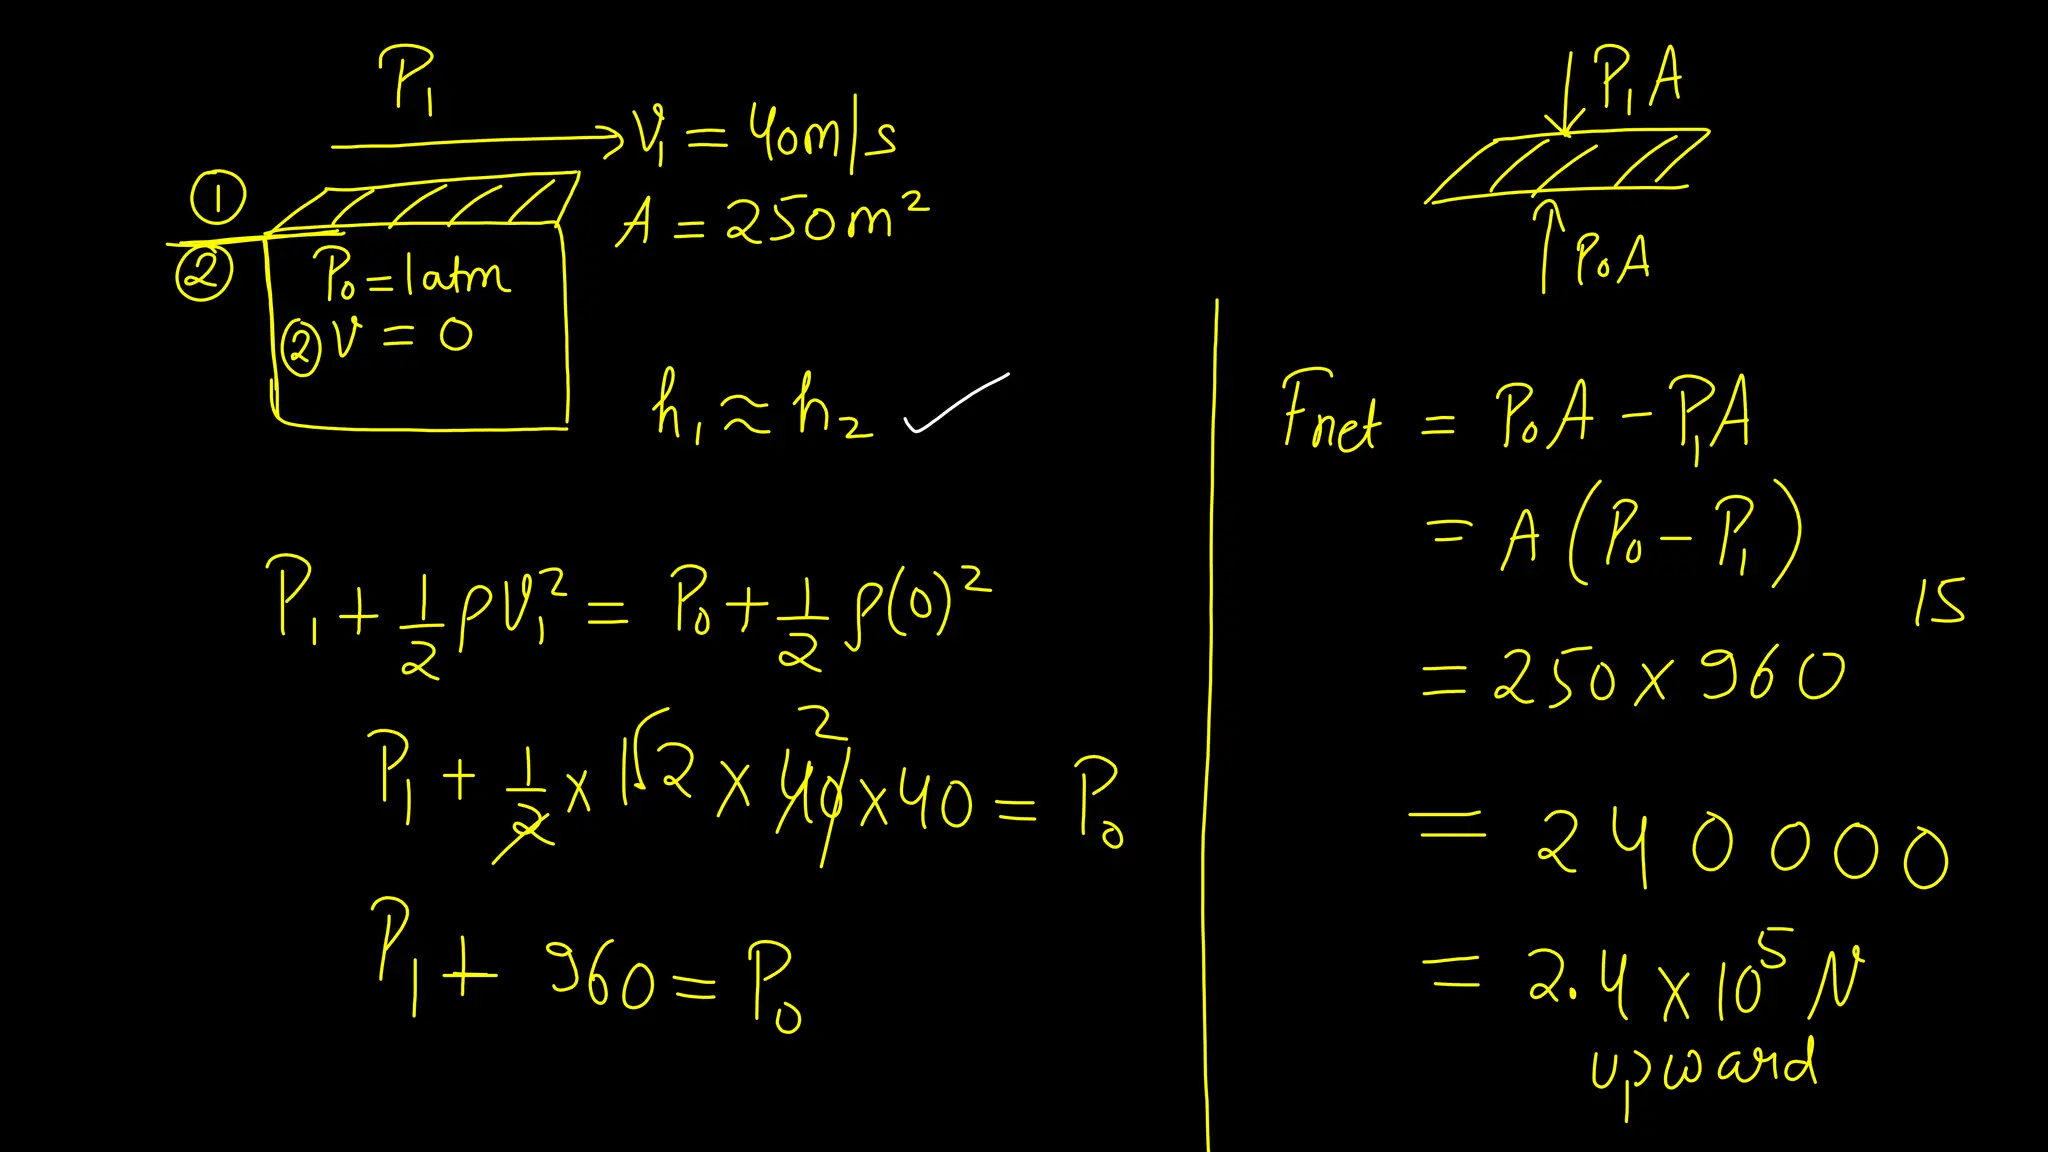 P₁
V₁ = 40m/s
①
A = 250m²
②
P₀ = 1atm
② V = 0
h₁ ≈ h₂ ✓
P₁ + 1/2 ρV₁² = P₀ + 1/2 ρ(0)²
P₁ + 1/2 × 1.2 × 40 × 40 = P₀
2
P₁ + 960 = P₀
P₁A
P₀A
Fnet = P₀A - P₁A
= A(P₀ - P₁)
15
= 250 × 960
= 240000
= 2.4 × 10⁵ N
upward